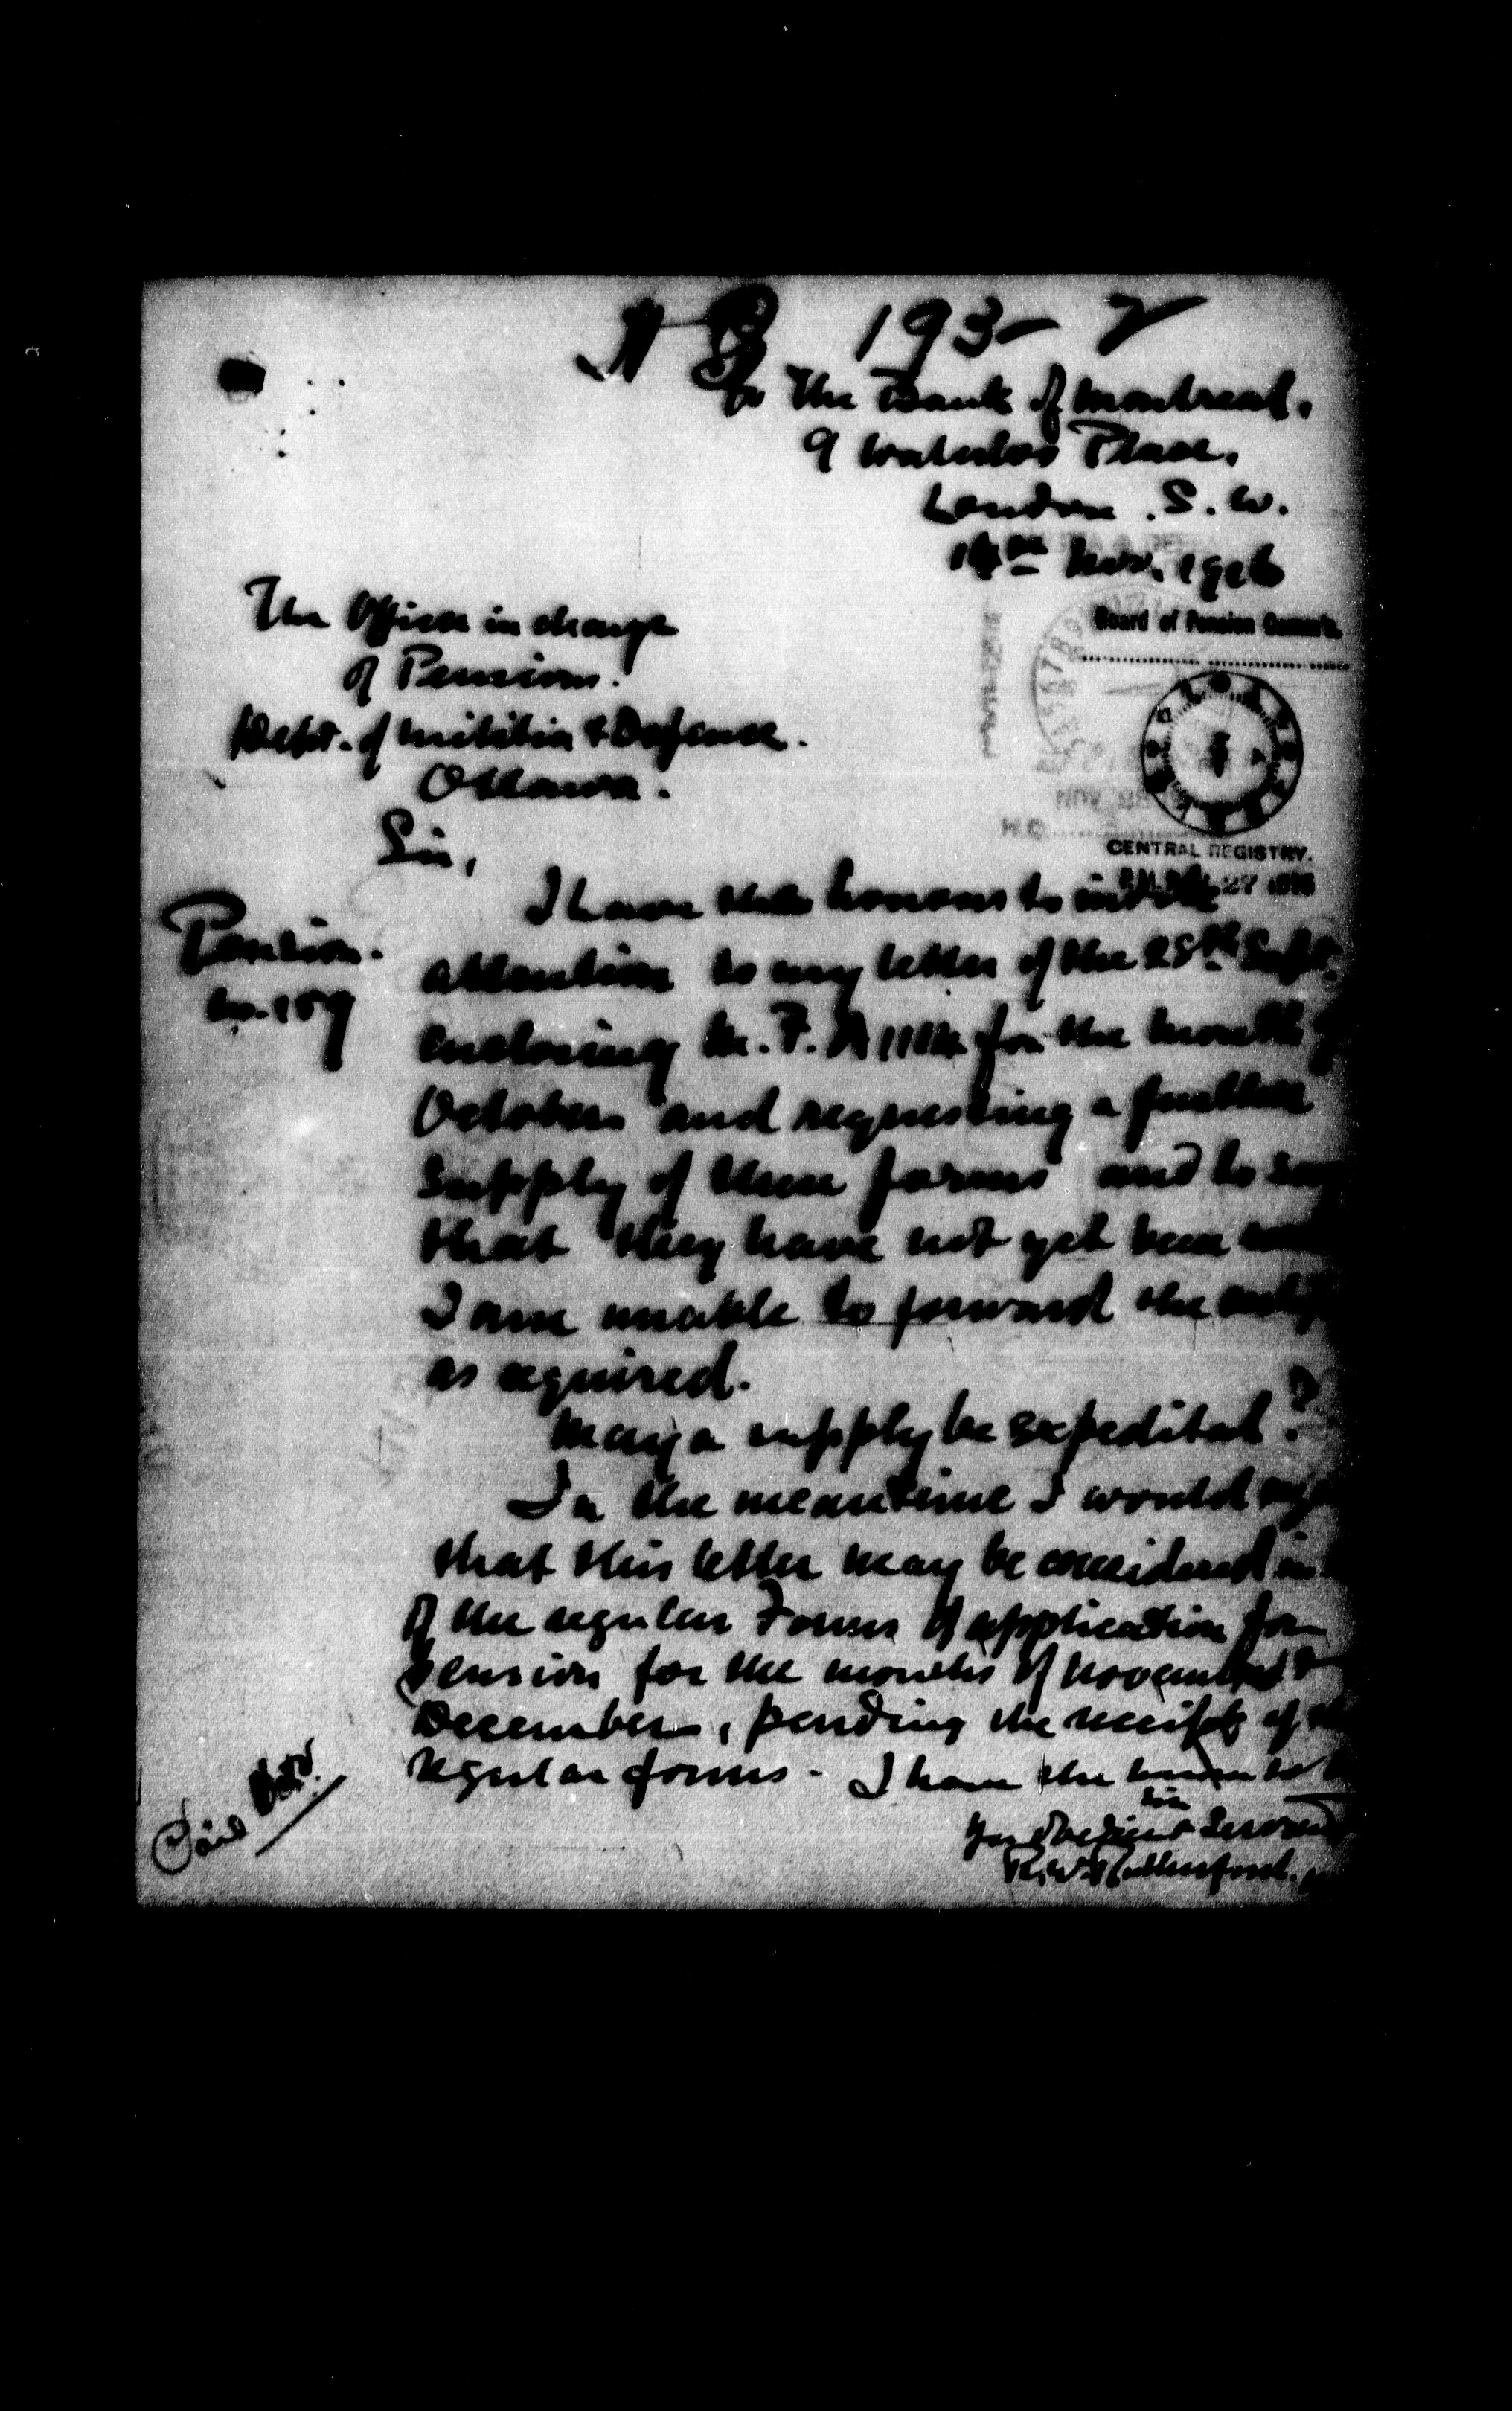 193- 2
c/o The Bank of Montreal.
9 Waterloo Place.
London. S.W.
14th Nov. 1916
Board of Pension Comm'rs.
The Officer in charge
of Pensions.
Dept. of Militia & Defence.
Ottawa.
NOV
H.Q.
CENTRAL REGISTRY.
27 1916
Sir,
I have the honour to invite
Pension.
No. 159
attention to my letter of the 28th Sept.
enclosing M.F. A 111A for the month of
October and requesting a further
supply of these forms and to say
that they have not yet been
I am unable to forward the
as required.
May a supply be expedited?
In the meantime I would
that this letter may be considered in
of the regular Forms of application for
Pension for the months of November &
December, pending the receipt of the
regular forms - I have the honour to be
Sir
Your obedient Servant
R.W. Rutherford.
Paid Nov.